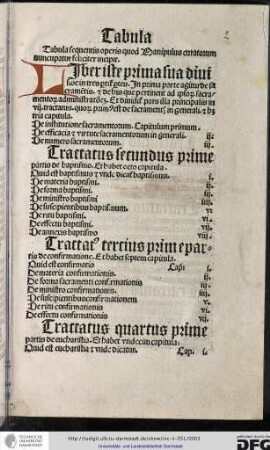 Tabula
Tabula sequentis operis quod Manipulus curatorum
nuncupatur feliciter incipit.
Liber iste prima sua divi
In prima parte agitur de
sacramētis. ⁊ de his que pertinent ad ipsorum sacra
mentorū administratiōeȝ. Et dividit̄ pars illa principalis in
vij. tractatus.
tria capitula.
De institutione sacramentorum. Capitulum primum.
De efficacia ⁊ virtute sacramentorum in generali. ij.
De numero sacramentorum. iij.
Tractatus secundus prime
partis de baptismo. Et habet octo capitula.
Quid est baptismus ⁊ vnde dicat̄ baptismus. i.
De materia baptismi. ij.
De forma baptismi. iij.
De ministro baptismi iiij
De suscipientibus baptismum. v.
De ritu baptismi. vi.
De effectu baptismi. vij.
De annexis baptismo viij.
Tractatꝰ tercius prime par
tis de confirmatione. Et habet septem capitula.
Quid est confirmatio Cap. i.
De materia confirmationis. ij.
De forma sacramenti confirmationis iij.
De ministro confirmationis. iiij.
De suscipientibus confirmationem v.
De ritu confirmationis vi.
De effectu confirmationis vij.
Tractatus quartus prime
partis de eucharistia. Et habet vndecim capitula.
Quid est eucharistia ⁊ vnde dicatur. Cap. i.
http://tudigit.ulb.tu-darmstadt.de/show/inc-ii-551/0003
Universitäts- und Landesbibliothek Darmstadt
TECHNISCHE UNIVERSITÄT DARMSTADT
gefördert durch die
DFG